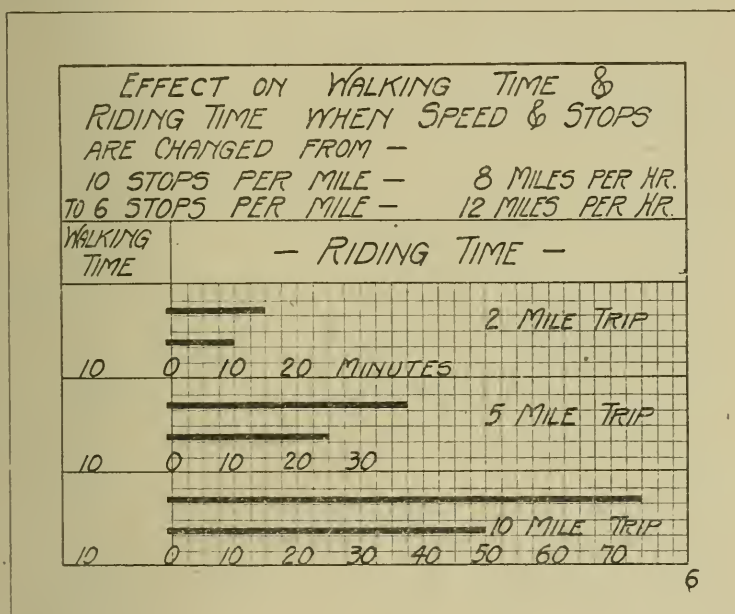 EFFECT ON WALKING TIME &
RIDING TIME WHEN SPEED & STOPS
ARE CHANGED FROM —
10 STOPS PER MILE — 8 MILES PER HR.
TO 6 STOPS PER MILE — 12 MILES PER HR.
WALKING
TIME
— RIDING TIME —
2 MILE TRIP
10 0 10 20 MINUTES
5 MILE TRIP
10 0 10 20 30
10 MILE TRIP
10 0 10 20 30 40 50 60 70
6